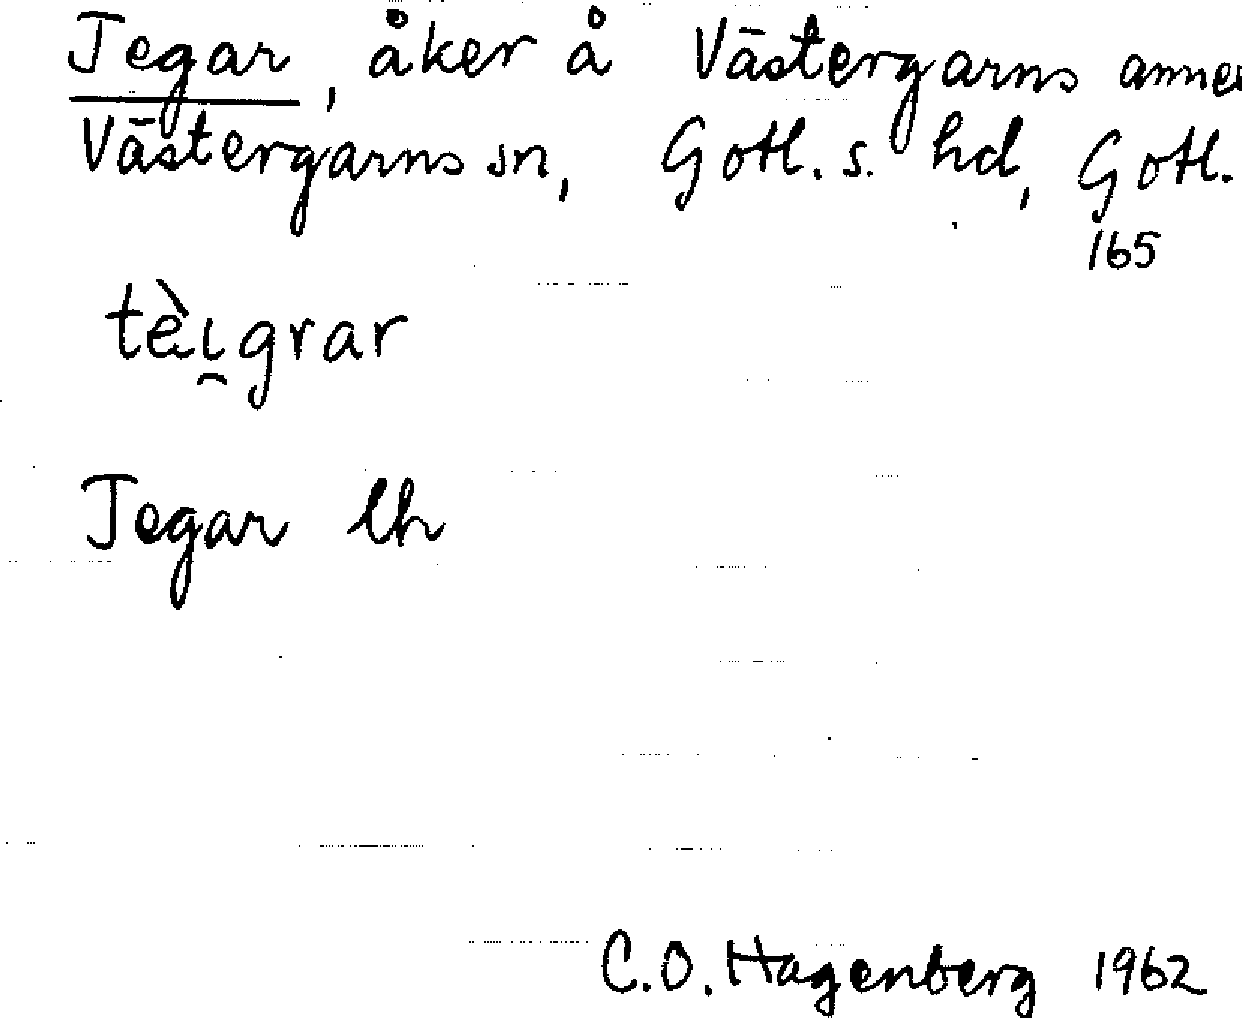 Tegar, åker å Västergarns annex
Västergarns sn, Gotl. s. hd, Gotl.
165
tèi̯grar
Tegar lh
C.O. Hagenberg 1962